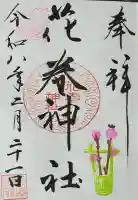 奉拝
花巻神社
令和八年二月二十一日